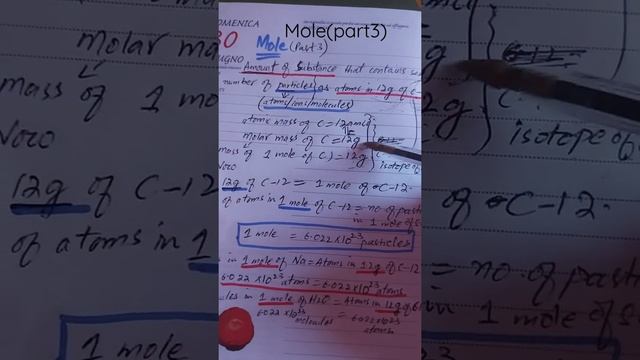 Mole(part3)
OMENICA
30
UGNO
Mole (Part 3)
Amount of Substance that contains
number of particles as atoms in 12g of C-
(atoms/ions/molecules)
atomic mass of C=12amu
molar mass of C=12g
mass of 1 mole of C)=12g
isotope of
12g of C-12 = 1 mole of C-12.
of atoms in 1 mole of C-12 = no of
in 1 mole of
1 mole = 6.022x10^23 particles
in 1 mole of Na=Atoms in 12g of C-12
6.022x10^23 atoms=6.022x10^23 atoms
in 1 mole of H2O=Atoms in 12g of
6.022x10^23 molecules = 6.022x10^23 atoms
molar mass
mass of 1 mo
12g of C-12
of atoms in 1
1 mole
12g
isotope of
of C-12.
= no of
in 1 mole of